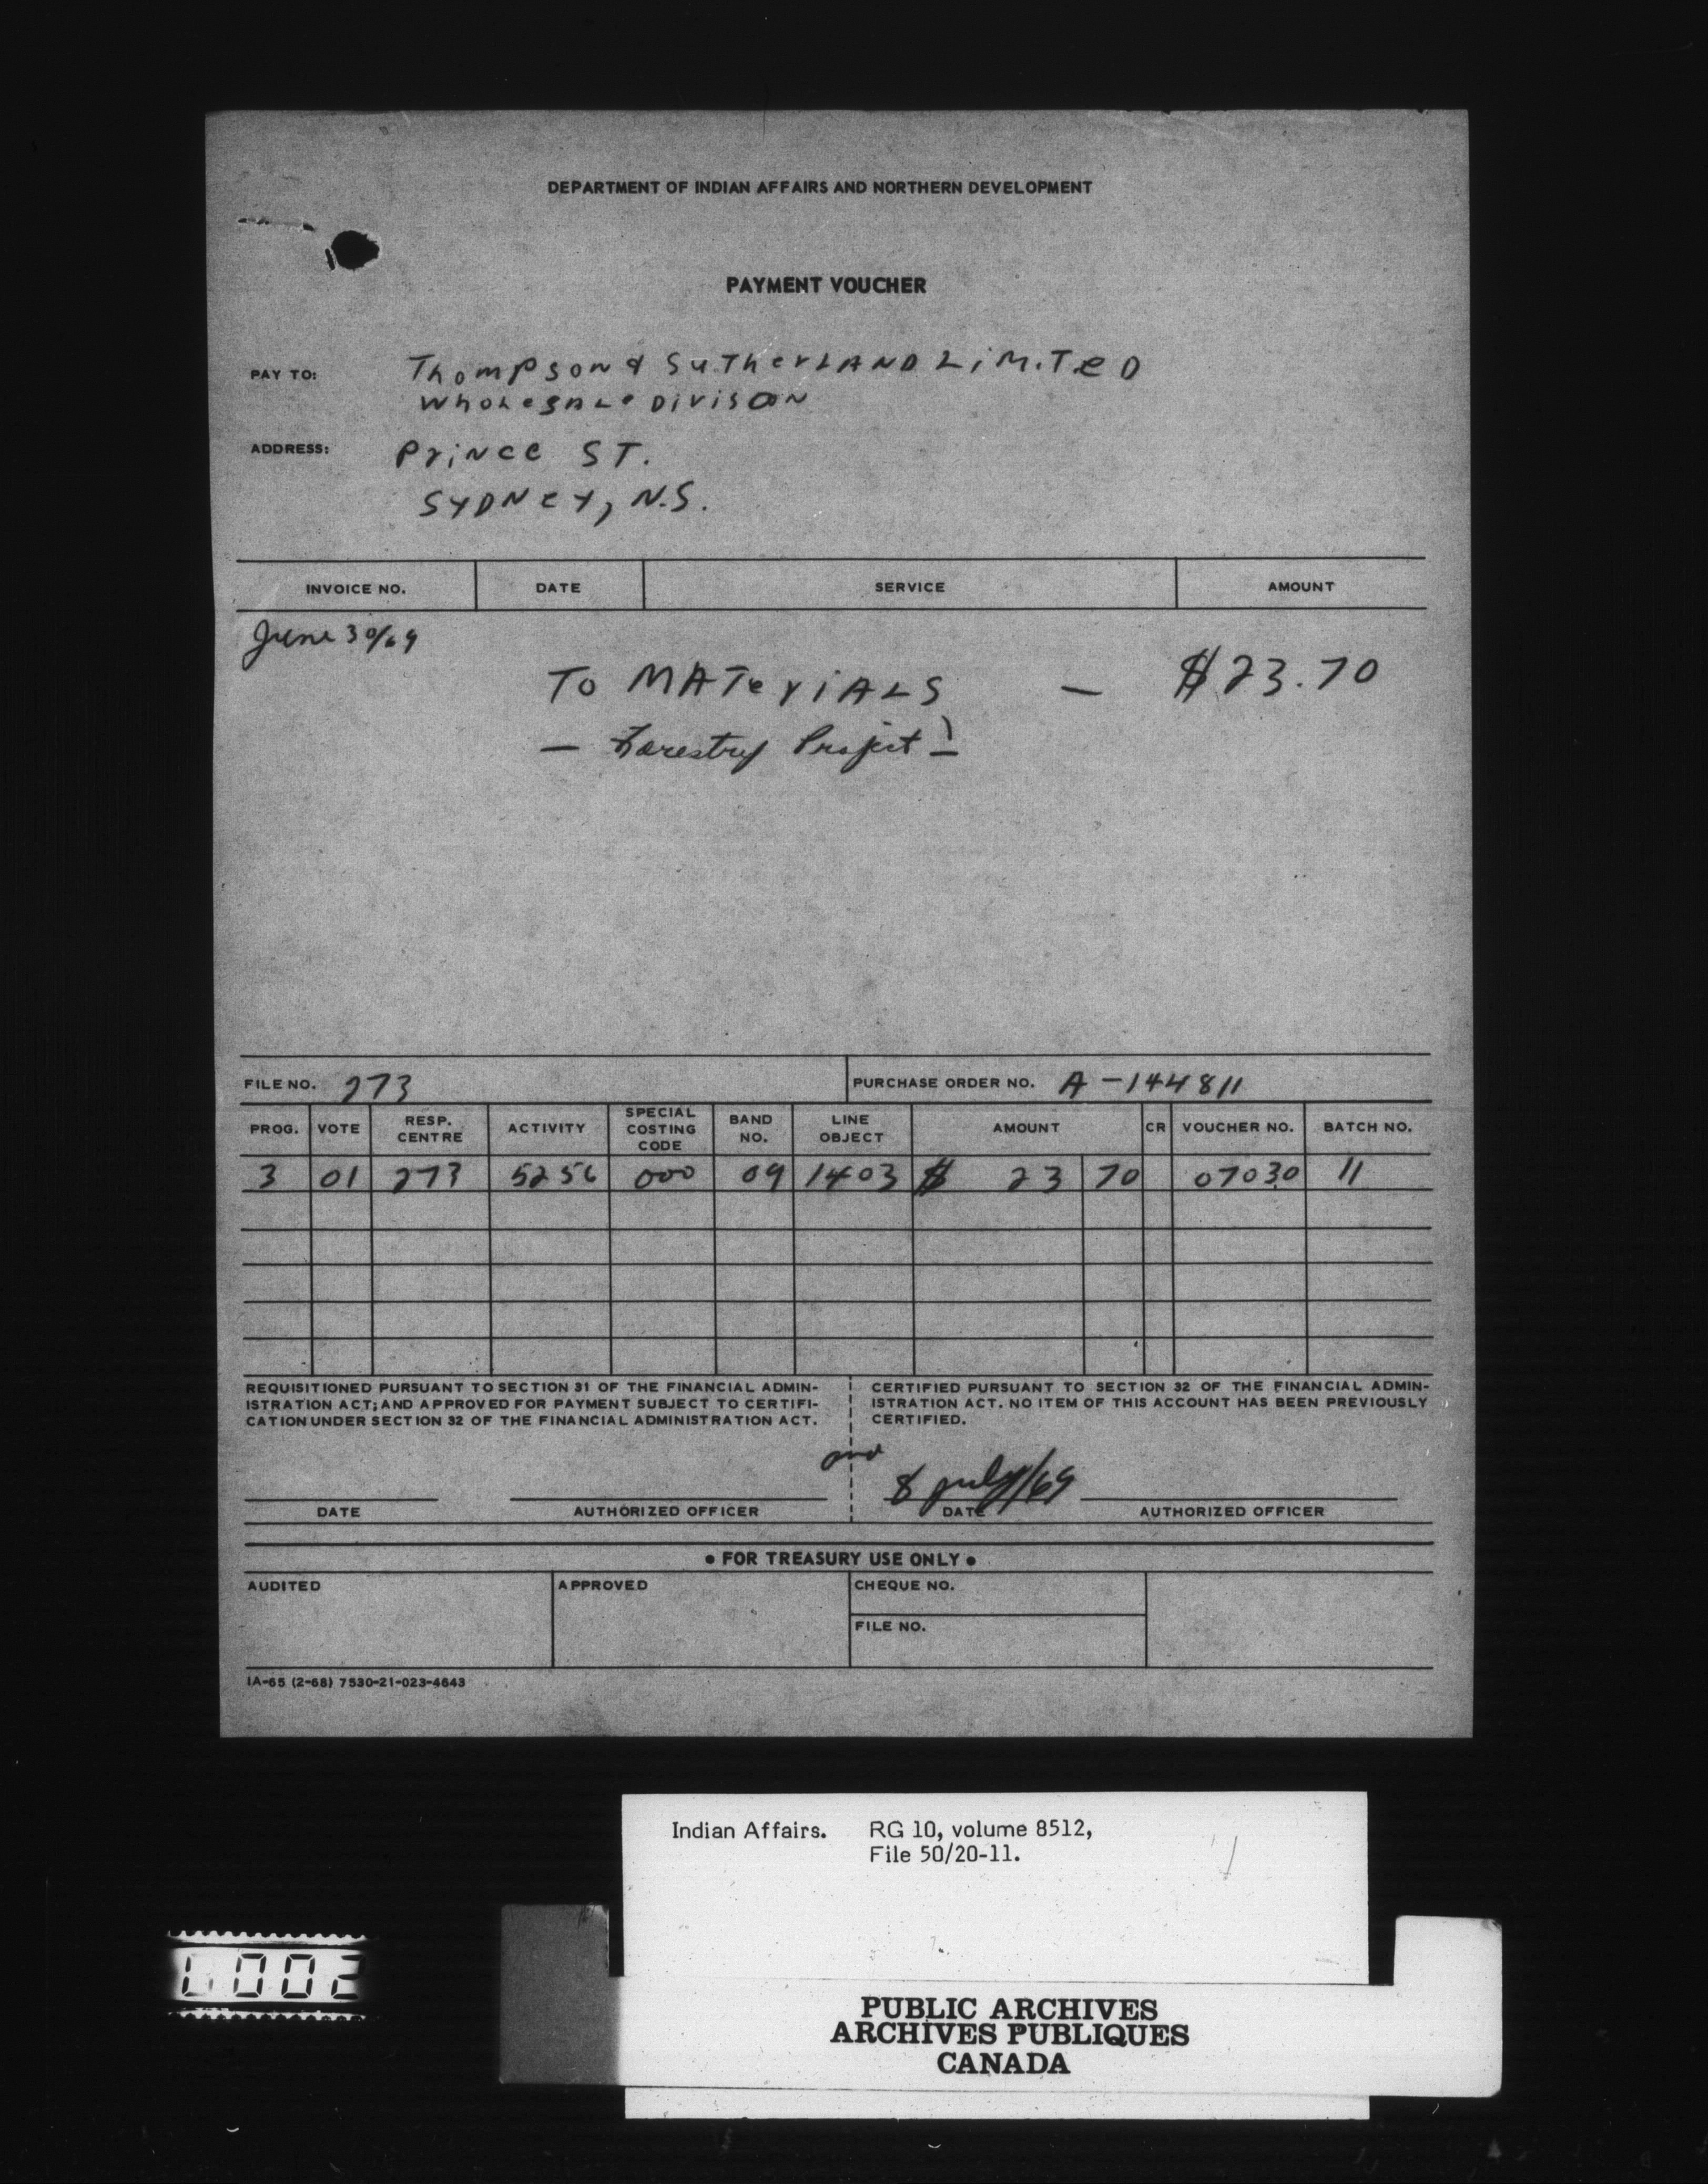 DEPARTMENT OF INDIAN AFFAIRS AND NORTHERN DEVELOPMENT
PAYMENT VOUCHER
PAY TO: Thompson & Sutherland Limited
Wholesale Divison
ADDRESS: Prince ST.
Sydney, N.S.
INVOICE NO. DATE SERVICE AMOUNT
June 30/69
To MATeriALS — $23.70
— Forestry Project —
FILE NO. 273 PURCHASE ORDER NO. A-144811
PROG. VOTE RESP. CENTRE ACTIVITY SPECIAL COSTING CODE BAND NO. LINE OBJECT AMOUNT CR VOUCHER NO. BATCH NO.
3 01 273 5256 000 09 1403 $ 23 70 07030 11
REQUISITIONED PURSUANT TO SECTION 31 OF THE FINANCIAL ADMIN-
ISTRATION ACT; AND APPROVED FOR PAYMENT SUBJECT TO CERTIFI-
CATION UNDER SECTION 32 OF THE FINANCIAL ADMINISTRATION ACT.
CERTIFIED PURSUANT TO SECTION 32 OF THE FINANCIAL ADMIN-
ISTRATION ACT. NO ITEM OF THIS ACCOUNT HAS BEEN PREVIOUSLY
CERTIFIED.
8 July/69
DATE AUTHORIZED OFFICER DATE AUTHORIZED OFFICER
• FOR TREASURY USE ONLY •
AUDITED APPROVED CHEQUE NO.
FILE NO.
IA-65 (2-68) 7530-21-023-4643
Indian Affairs. RG 10, volume 8512,
File 50/20-11.
PUBLIC ARCHIVES
ARCHIVES PUBLIQUES
CANADA